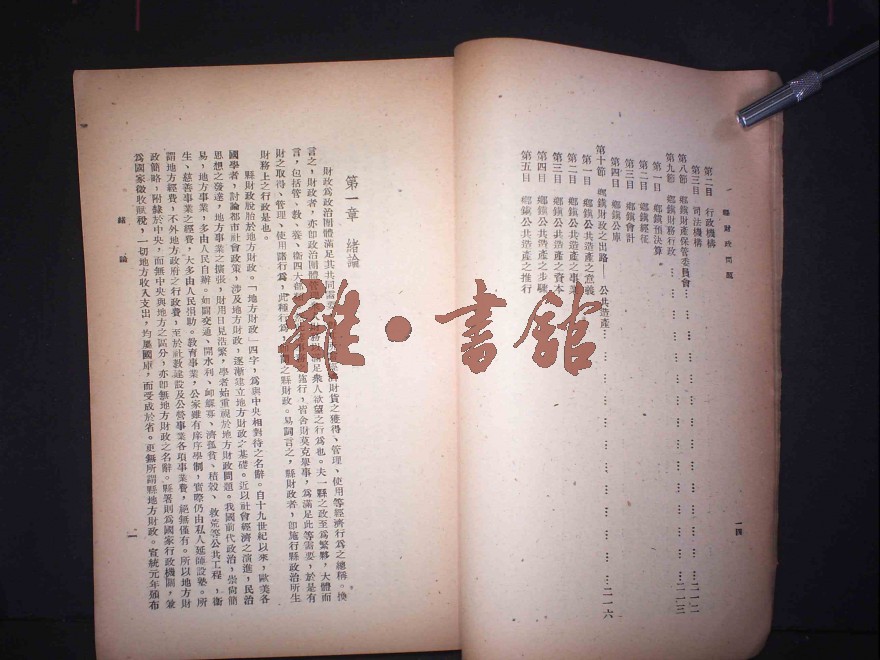 縣財政問題
一四
第二目 行政機構
第三目 司法機構
第八節 鄉鎮財產保管委員會……二一二
第九節 鄉鎮財務行政……二一三
第一目 鄉鎮預決算
第二目 鄉鎮經征
第三目 鄉鎮會計
第四目 鄉鎮公庫
第十節 鄉鎮財政之出路——公共造產……二一六
第一目 鄉鎮公共造產之意義
第二目 鄉鎮公共造產之事業
第三目 鄉鎮公共造產之資本
第四目 鄉鎮公共造產之步驟
第五目 鄉鎮公共造產之推行
第一章 緒論
財政為政治團體滿足其共同需要 財貨之獲得、管理、使用等經濟行為之總稱。換
言之,財政者,亦卽政治團體 滿足衆人欲望之行為也。夫一縣之政至為繁夥,大體而
言,包括管、教、養、衛四大部 施行,皆舍財莫克舉事,為滿足此等需要,於是有
財之取得、管理、使用諸行為,此種行為 之縣財政。易詞言之,縣財政者,卽施行縣政治所生
財務上之行政是也。
縣財政脫胎於地方財政。「地方財政」四字,為與中央相對待之名辭。自十九世紀以來,歐美各
國學者,討論都市社會政策,涉及地方財政,逐漸建立地方財政之基礎。近以社會經濟之演進,民治
思想之發達,地方事業之擴張,財用日見浩繁,學者始重視於地方財政問題。我國前代政治,崇尚簡
易,地方事業,多由人民自辦。如闢交通、開水利、卹鰥寡、濟孤貧、積穀、救荒等公共工程,衛
生、慈善事業之經費,大多由人民捐助。教育事業,公家雖有庠序學制,實際仍由私人延師設塾。所
謂地方經費,不外地方政府之行政費,至於社教建設及公營事業各項事業費,絕無僅有。所以地方財
政簡略,附隸於中央,而無中央與地方之區分,亦卽無地方財政之名辭。縣署則為國家行政機關,兼
為國家徵收賦稅,一切地方收入支出,均屬國庫,而受成於省。更無所謂縣地方財政。宣統元年頒布
緒論
一
雜·書館